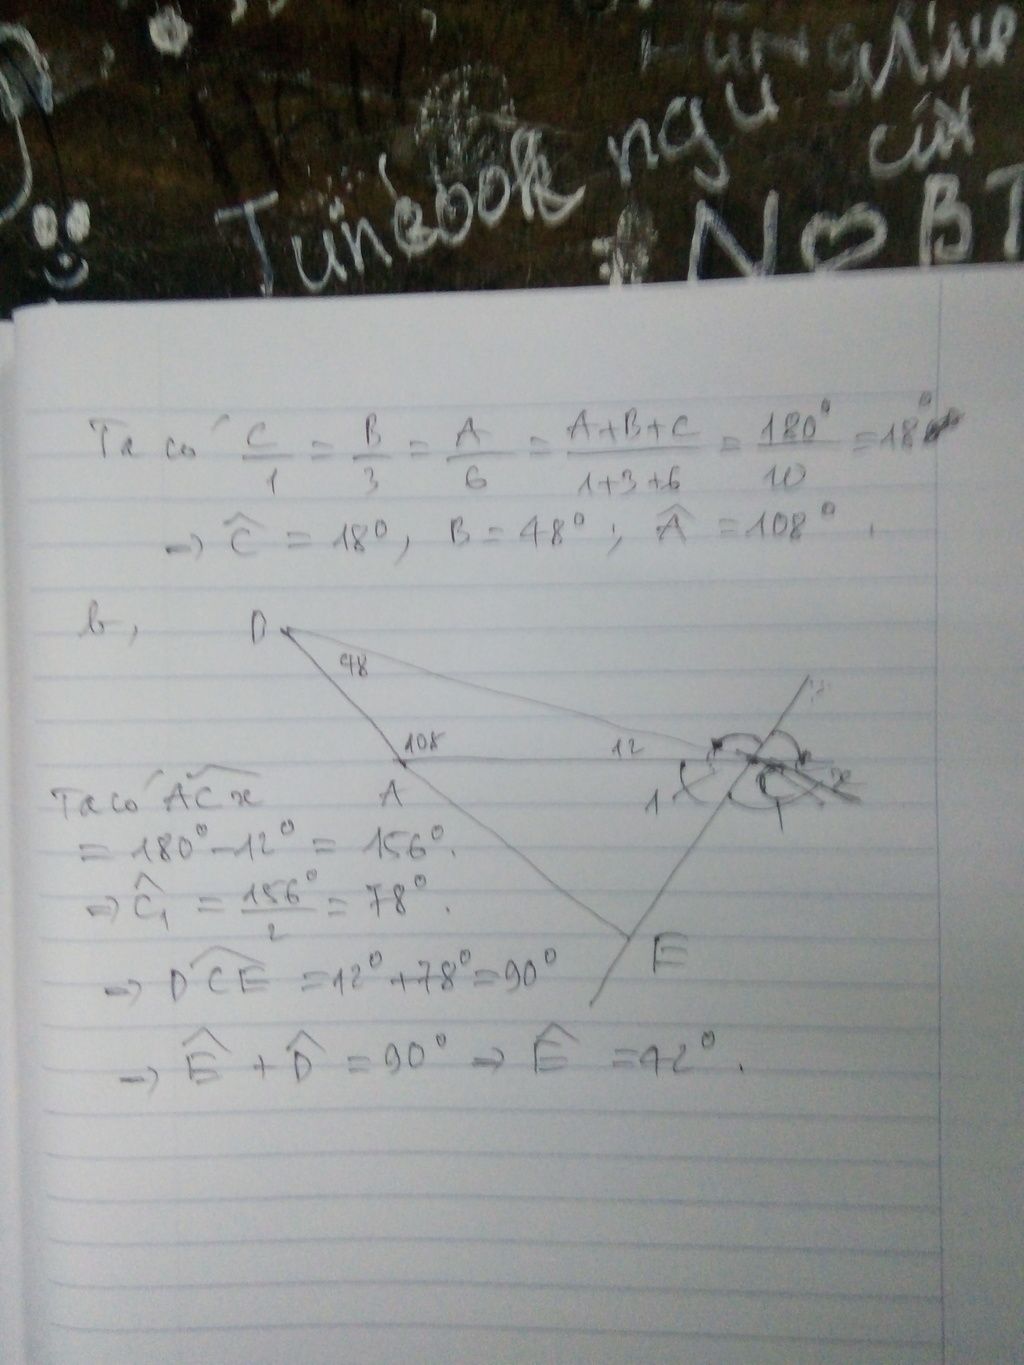 Tuấn book ngu
cứt
N ♡ BT
Ta có C/1 = B/3 = A/6 = A+B+C/1+3+6 = 180°/10 = 18°
=> Ĉ = 18°, B = 48°; Â = 108°.
b,
D
48
108
12
A
1
C
x
E
Ta có ACx
= 180° - 12° = 156°.
=> Ĉ₁ = 156°/2 = 78°.
=> DCE = 12° + 78° = 90°
=> Ê + D̂ = 90° => Ê = 42°.